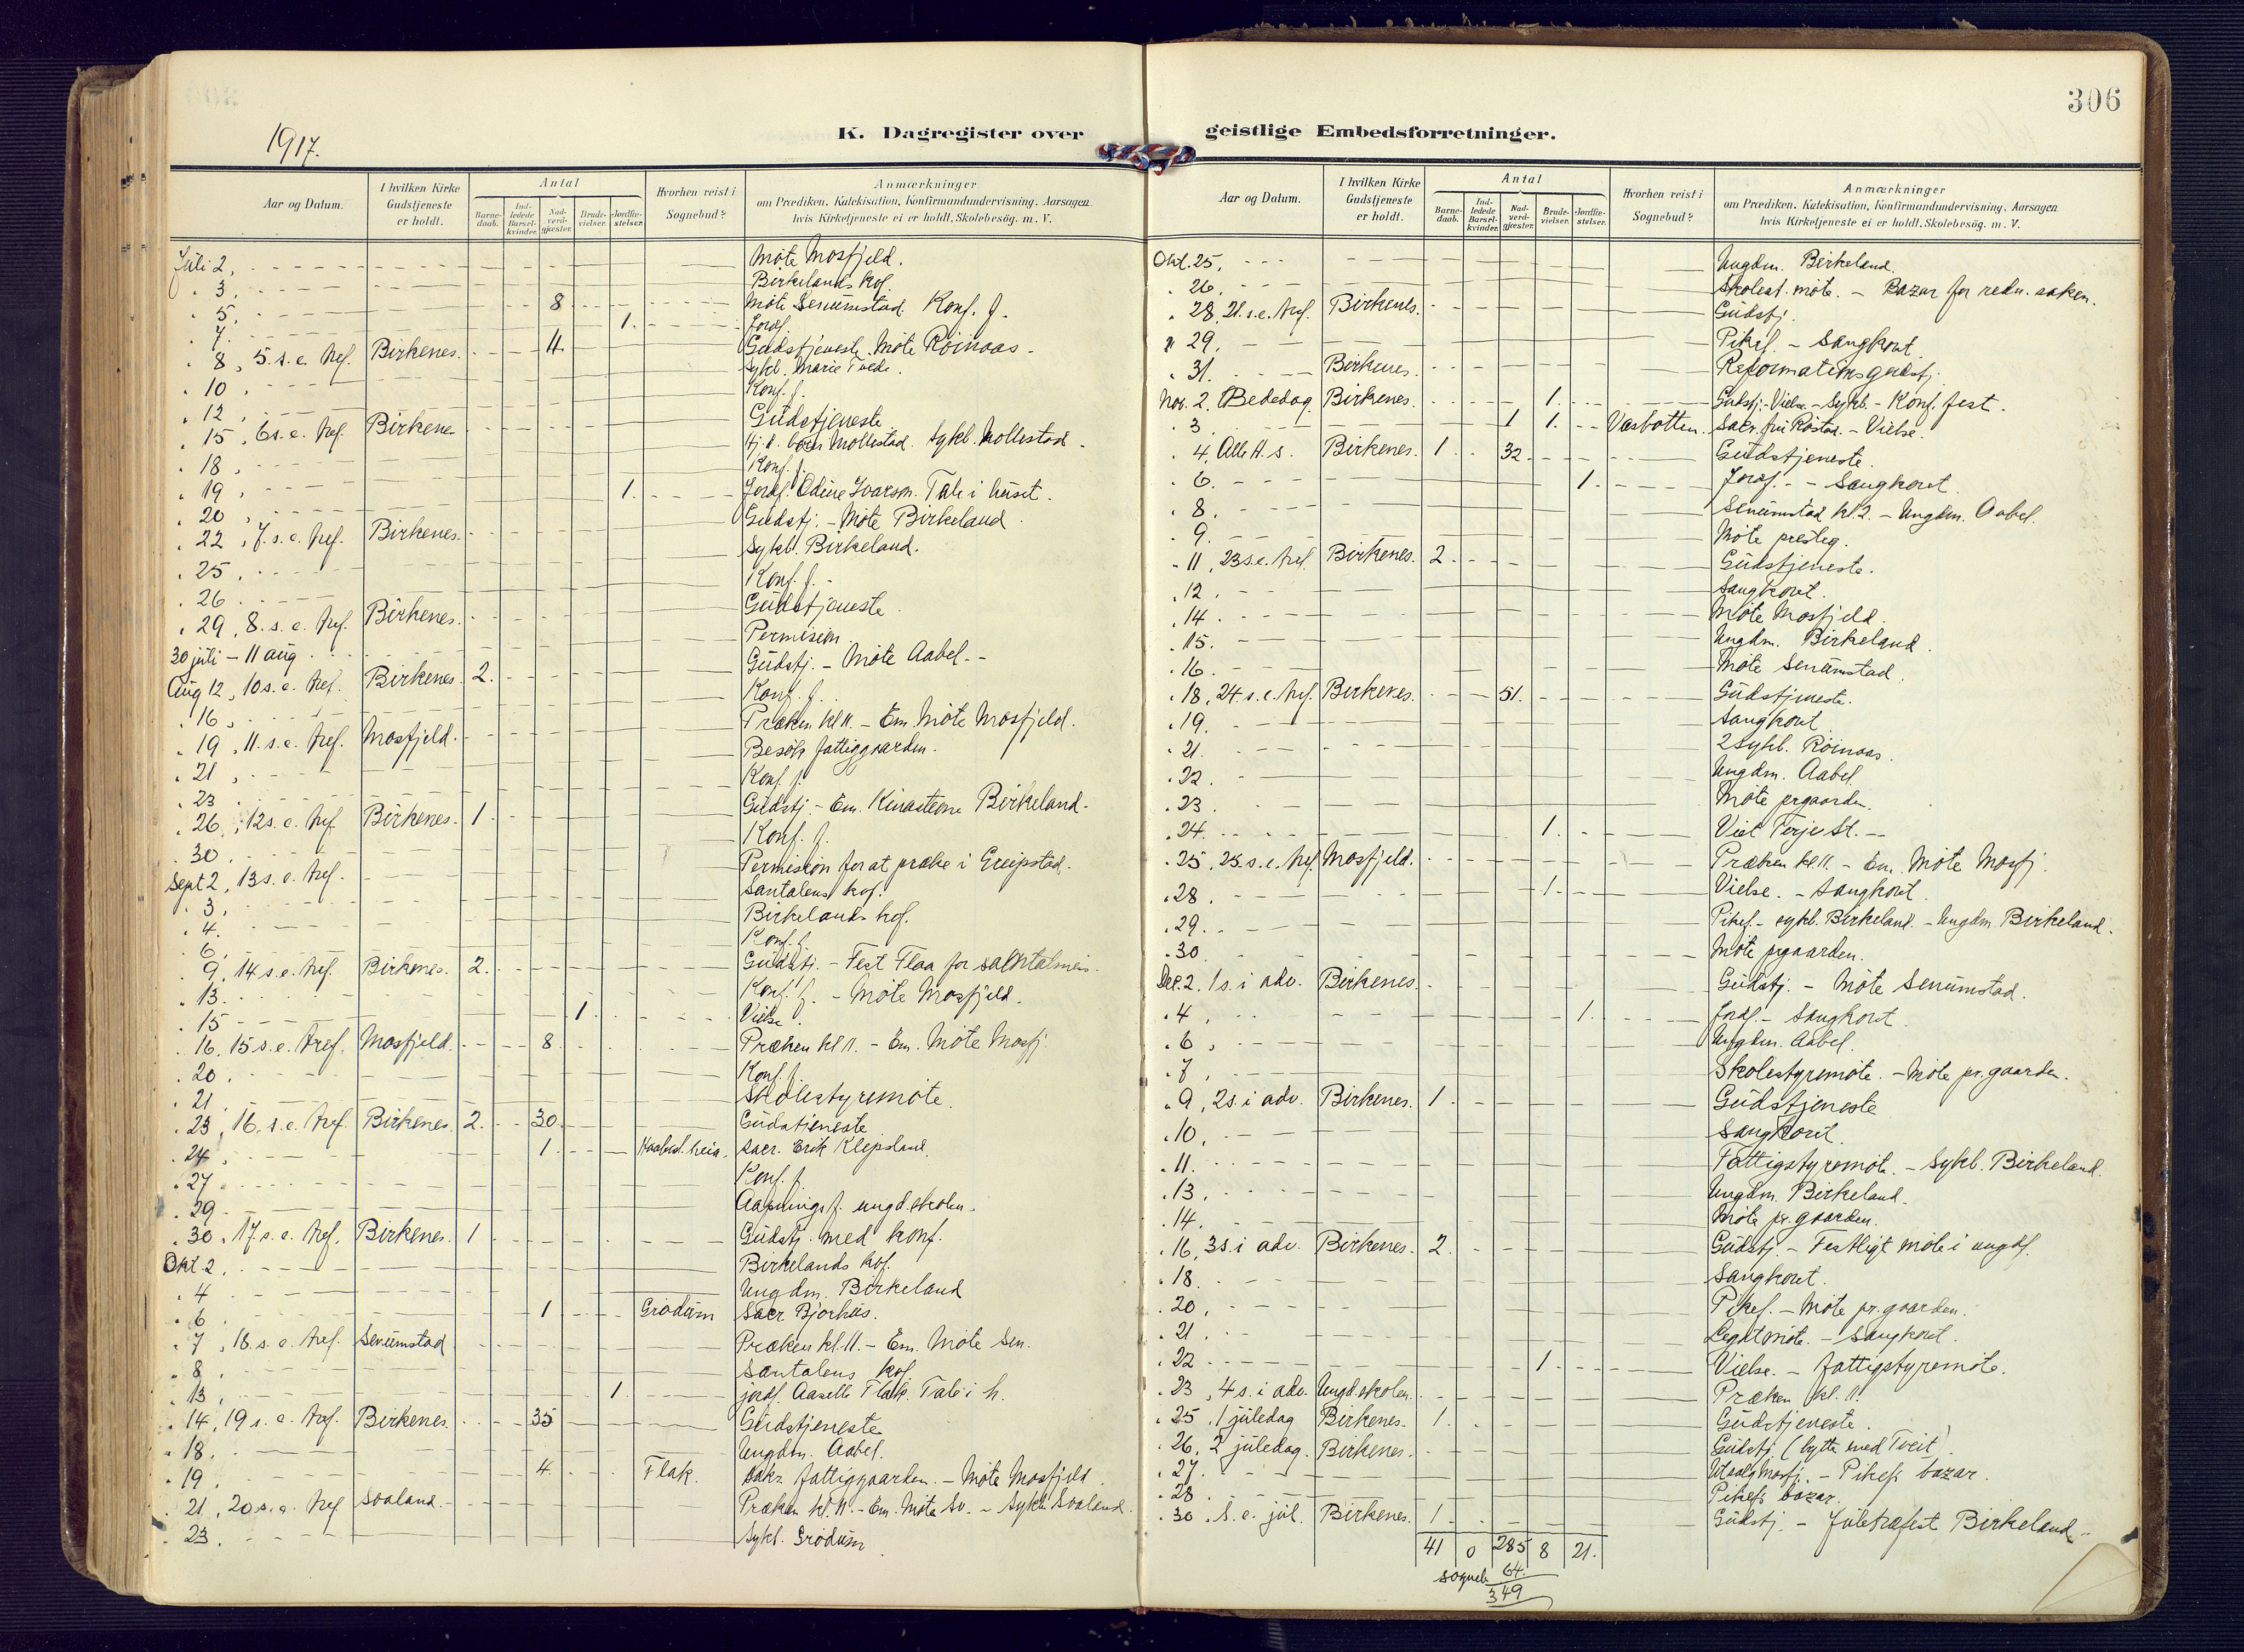 306
1917.
K. Dagregister over geistlige Embedsforretninger.
Aar og Datum.
I hvilken Kirke Gudstjeneste er holdt.
Antal
Barne-daab.
Ind-ledede Barsel-kvinder.
Nad-verd-gjæster.
Brude-vielser.
Jordfæ-stelser.
Hvorhen reist i Sognebud?
Anmærkninger
om Prædiken, Katekisation, Konfirmandundervisning. Aarsagen
hvis Kirketjeneste ei er holdt. Skolebesög. m. V.
Juli 2, Møte Mosfjeld.
" 3. Birkelands kof.
" 5. 8 Møte Senumstad. Konf. f.
" 7. 1. Jordf.
" 8, 5. s. e. tref. Birkenes. 4 Gudstjeneste. Møte Röinaas.
" 10. Sykb. Marie Tvede.
" 12. Konf. f.
" 15, 6 s. e. tref. Birkenes Gudstjeneste
" 18, Mollestad. Sykb. Mollestad.
" 19, Konf. f.
" 20 1. Jordf. Odine Ivarson. Tale i huset.
" 22, 7. s. e. tref. Birkenes. Gudstj. - Møte Birkeland
" 25, Sykb. Birkeland.
" 26. Konf. f. -
" 29, 8. s. e. tref. Birkenes. Gudstjeneste.
30 juli - 11 aug. Permision.
Aug 12, 10 s. e. tref. Birkenes. 2. Gudstj. - Møte Aabel. -
" 16, Konf. f.
" 19, 11. s. e. tref. Mosfjeld. Præken kl 11. - Em. Møte Mosfjeld.
" 21, Besøk fattiggaarden.
" 23. Konf. f.
" 26, 12 s. e. tref Birkenes. 1. Gudstj. - Em. Kinastevne Birkeland.
" 30. Konf. f.
Sept 2, 13 s. e. tref. Permision for at præke i Greipstad.
" 3. Santalens kof.
" 4. Birkelands kof.
" 6. Konf. f.
" 9, 14 s. e. tref. Birkenes. 2. Gudstj. - Fest Flaa for santalmis.
" 13. Konf. f. - Møte Mosfjeld.
" 15 1. Vielse.
" 16, 15 s. e. tref. Mosfjeld. 8. Præken kl 11. - Em. Møte Mosfj.
" 20. Konf. f.
" 21. Skolestyremøte.
" 23, 16. s. e. tref. Birkenes. 2. 30. Gudstjeneste
" 24, 1. heia. sacr. Erik Klepsland.
" 27. Konf. f.
" 29. Aapningsf. ungd.skolen.
" 30, 17. s. e. tref. Birkenes. 1. Gudstj. med konf.
Okt 2. Birkelands kof.
" 4 Ungdm. Birkeland
" 6 1 Grødum Sacr Bjorhus.
" 7, 18. s. e. tref. Senumstad Præken kl. 11. - Em. Møte Sen.
" 8. Santalens kof
" 13, 1. jordf. Aaselle Flak. Tale i h.
" 14, 19 s. e. tref. Birkenes. 35 Gudstjeneste
" 18. Ungdm. Aabel.
" 19. 4 Flak. sakr. fattiggaarden. - Møte Mosfjeld
" 21, 20 s. e. tref Svaland. Præken kl. 11. - Em. Møte Sv. - Sykb. Svaland.
" 23. Sykb. Grødum
Aar og Datum.
I hvilken Kirke Gudstjeneste er holdt.
Antal
Barne-daab.
Ind-ledede Barsel-kvinder.
Nad-verd-gjæster.
Brude-vielser.
Jordfæ-stelser.
Hvorhen reist i Sognebud?
Anmærkninger
om Prædiken, Katekisation, Konfirmandundervisning. Aarsagen
hvis Kirketjeneste ei er holdt. Skolebesög. m. V.
Okt. 25. Ungdm. Birkeland.
" 26. Skolest. møte. - Bazar for redn. saken.
" 28, 21. s. e. tref. Birkenes. Gudstj.
" 29. Pikef. - Sangkoret.
" 31. Birkenes. Reformationsgudstj.
Nov. 2. Bededag. Birkenes. 1. Gudstj. - Vielse - Sykb. - Konf. fest.
" 3. 1 1. Væsbotten. Sacr. fru Rostad. - Vielse.
" 4. Alle H. s. Birkenes. 1. 32. Gudstjeneste.
" 6. 1. Jordf. - - Sangkoret.
" 8. Senumstad kl. 2. - Ungdm. Aabel.
" 9. Møte presteg.
" 11, 23 s. e. tref. Birkenes. 2. Gudstjeneste.
" 12. Sangkoret.
" 14. Møte Mosfjeld.
" 15. Ungdm. Birkeland.
" 16. Møte Senumstad.
" 18, 24. s. e. tref. Birkenes. 51. Gudstjeneste.
" 19. Sangkoret
" 21. 2 Sykb. Röinaas.
" 22. Ungdm. Aabel
" 23. Møte prgaarden.
" 24. 1. Viet Terje St. -
" 25, 25. s. e. tref. Mosfjeld. Præken kl. 11. - Em. Møte Mosfj.
" 28. 1. Vielse. - Sangkoret.
" 29. Pikef. - sykb. Birkeland. - Ungdm. Birkeland.
" 30. Møte prgaarden.
Des. 2. 1 s. i adv. Birkenes. Gudstj. - Møte Senumstad.
" 4, 1. Jordf. - Sangkoret.
" 6, Ungdm. Aabel.
" 7, Skolestyremøte. - Møte pr.gaarden.
" 9, 2 s. i adv. Birkenes. 1. Gudstjeneste
" 10. Sangkoret.
" 11. Fattigstyremøte. - Sykb. Birkeland.
" 13. Ungdm. Birkeland.
" 14. Møte pr.gaarden.
" 16, 3 s. i adv. Birkenes. 2. Gudstj. - Festligt møte i ungdf.
" 18. Sangkoret.
" 20. Pikef. - Møte pr.gaarden.
" 21. Legatmøte. - Sangkoret.
" 22 1. Vielse. - Fattigstyremøte.
" 23, 4 s. i adv. Ungd.skolen. Præken kl. 11.
" 25, 1 juledag Birkenes. 1. Gudstjeneste.
" 26, 2 juledag. Birkenes. Gudstj. (bytte med Tveit).
" 27. Utsalg Mosfj. - Pikefs bazar.
" 28. Pikefs bazar.
" 30. S. e. jul. Birkenes. 1. Gudstj. - Juletræfest Birkeland.
41 0 285 8 21.
sogneb. 64.
349